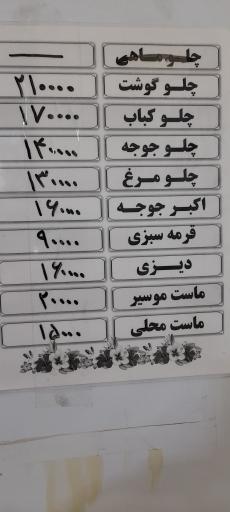 چلو ماهی ــــــ
چلو گوشت ۲۱۰۰۰۰
چلو کباب ۱۷۰۰۰۰
چلو جوجه ۱۴۰۰۰۰
چلو مرغ ۱۳۰۰۰۰
اکبر جوجه ۱۶۰۰۰۰
قرمه سبزی ۹۰۰۰۰
دیزی ۱۶۰۰۰۰
ماست موسیر ۲۰۰۰۰
ماست محلی ۱۵۰۰۰